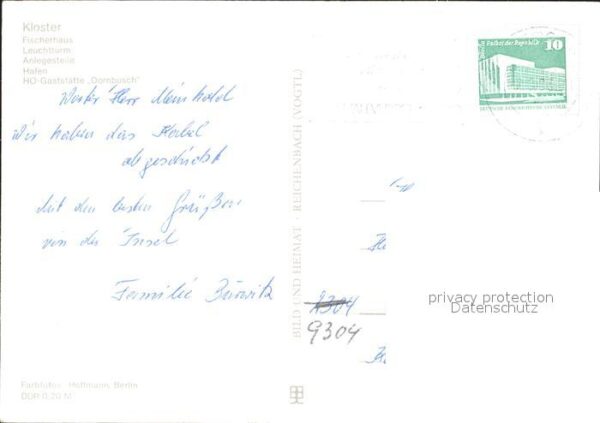 Kloster
Fischerhaus
Leuchtturm
Anlegestelle
Hafen
HO-Gaststätte „Dornbusch"
Werter Herr Meinhold
Wir haben das Kabel
abgeschickt
Mit den besten Grüßen
von der Insel
Familie
Farbfotos: Hoffmann, Berlin
DDR 0,20 M
BILD UND HEIMAT · REICHENBACH (VOGTL)
Palast der Republik
10
2304
9304
privacy protection
Datenschutz